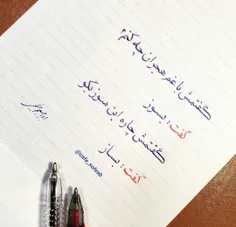 گفتمش با غم هجران چه کنم
گفت: بسوز
گفتمش چاره این سوز بگو
گفت: بساز
@cafe_sohrab